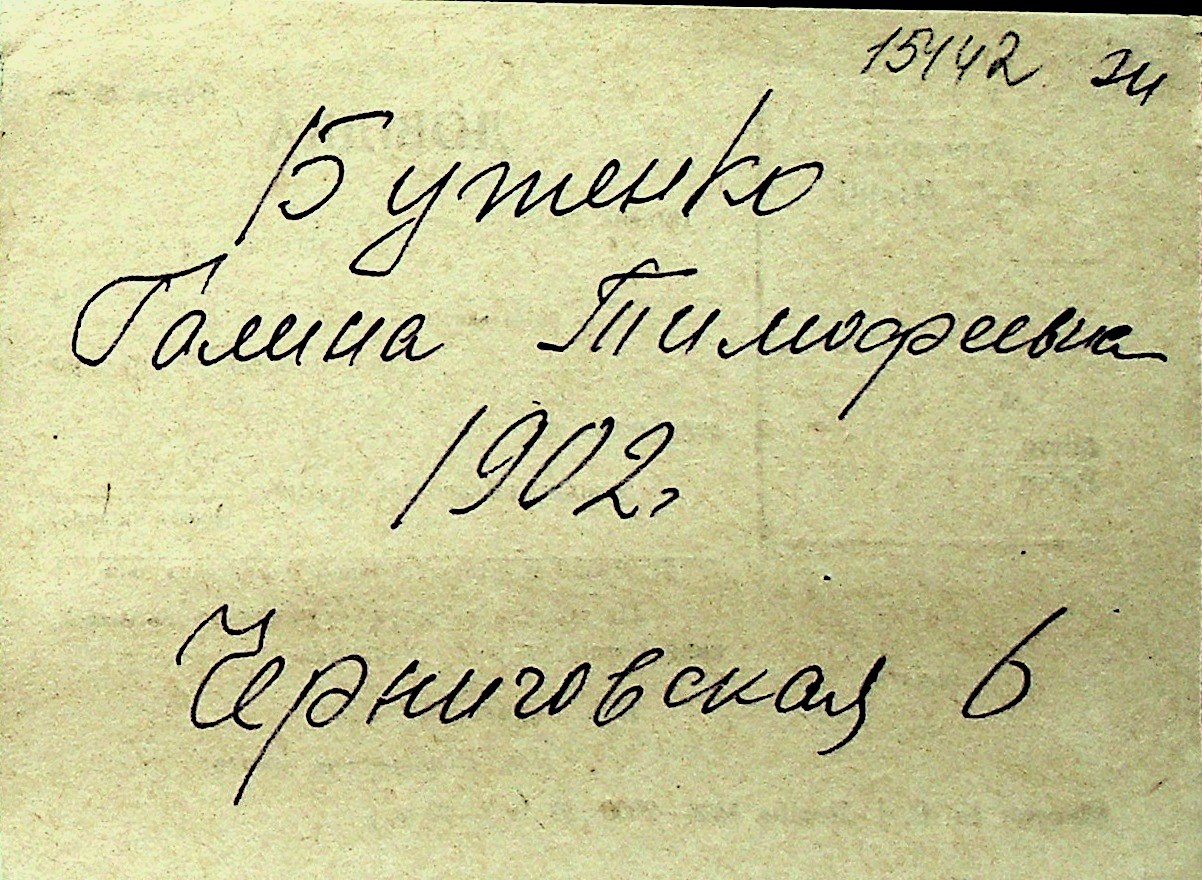 15442 эи
Бутенко
Галина Тимофеевна
1902г
Черниговская 6